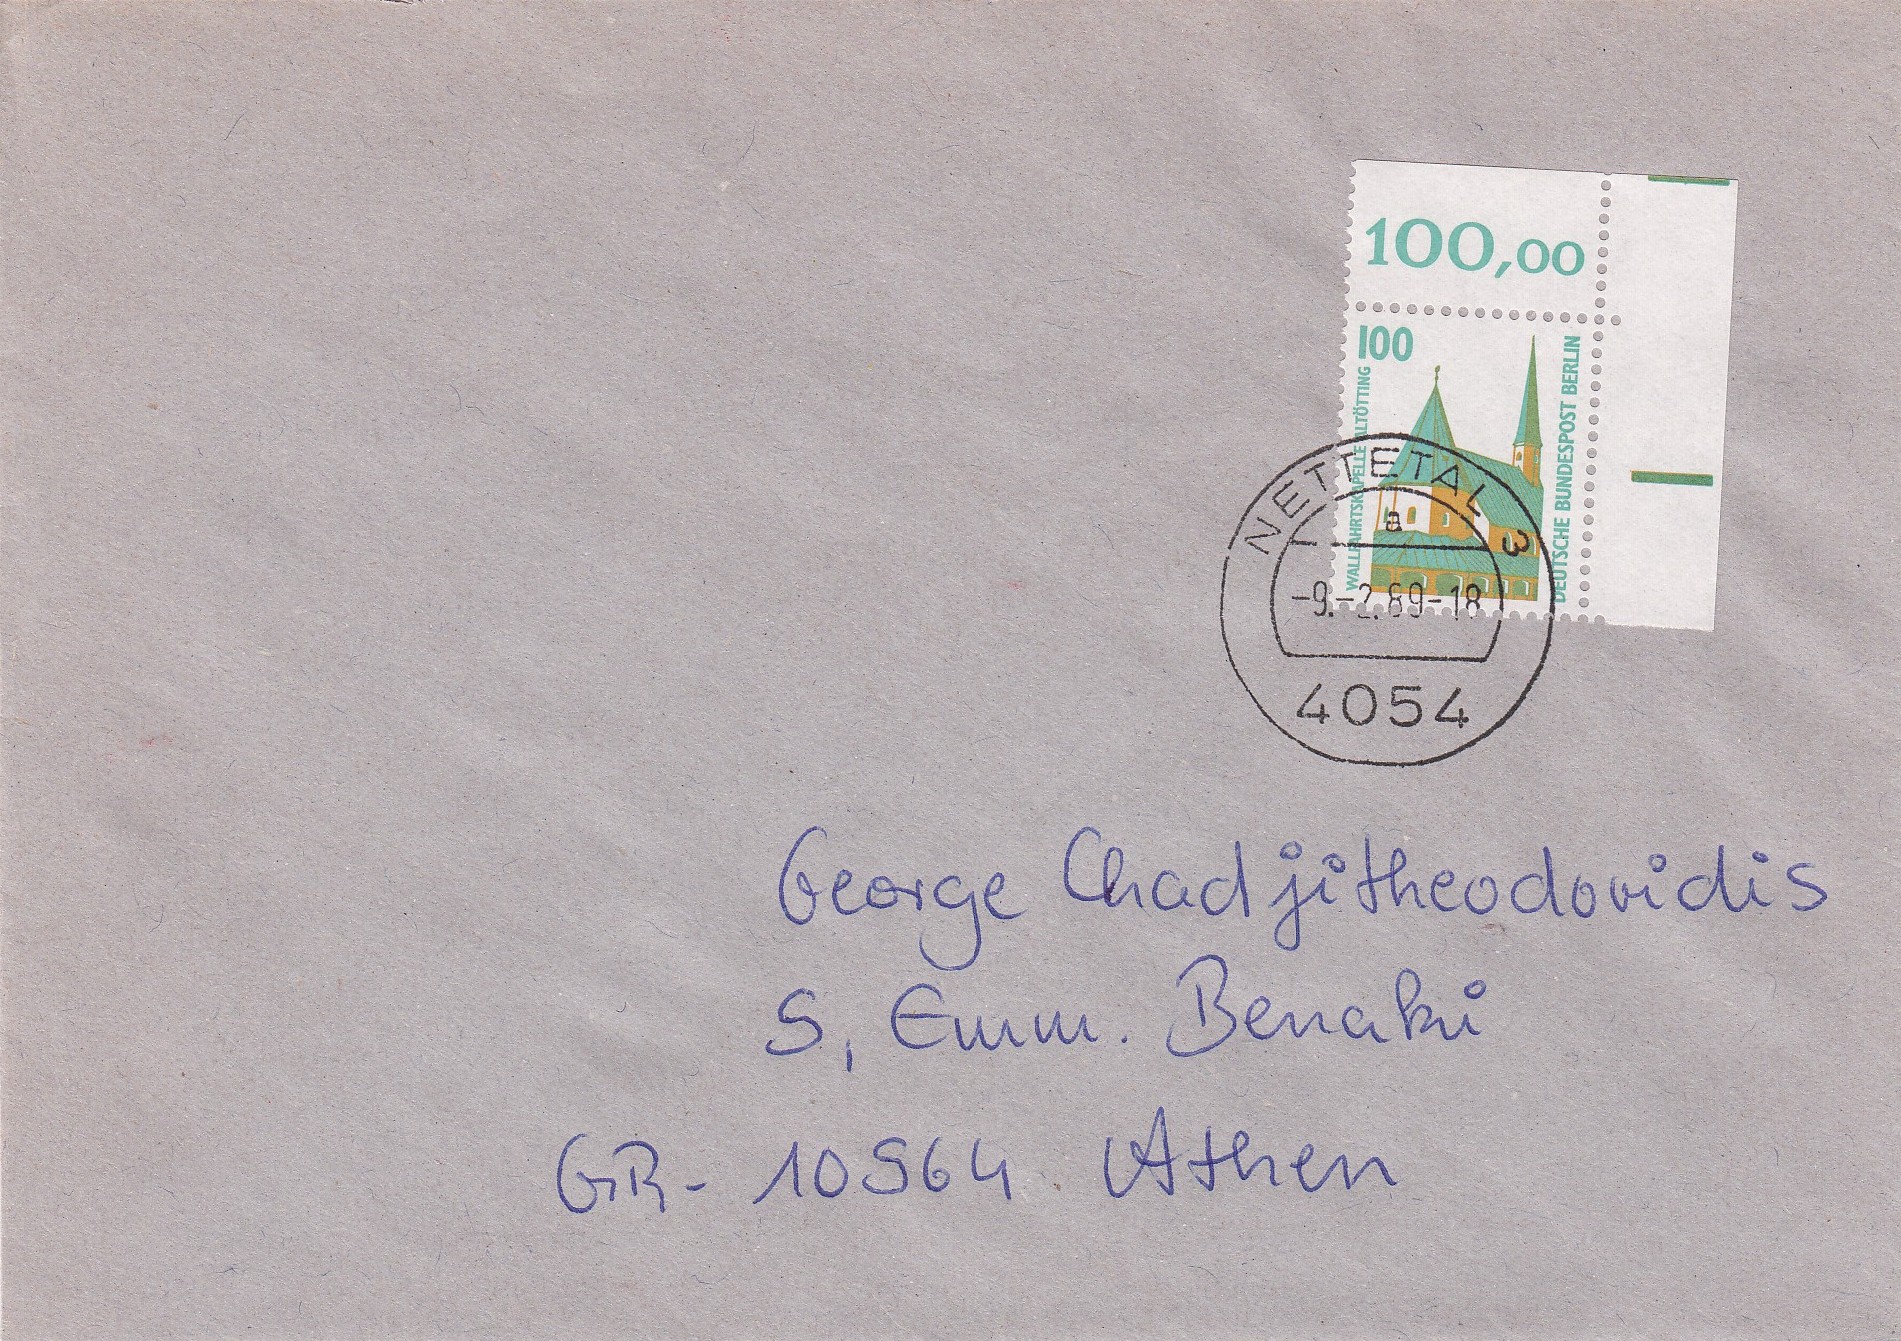 100,00
100
WALLFAHRTSKAPELLE ALTÖTTING
DEUTSCHE BUNDESPOST BERLIN
NETTETAL 3
a
-9.-2.89-18
4054
George Chadjitheodoridis
5, Emm. Benaki
GR- 10564 Athen